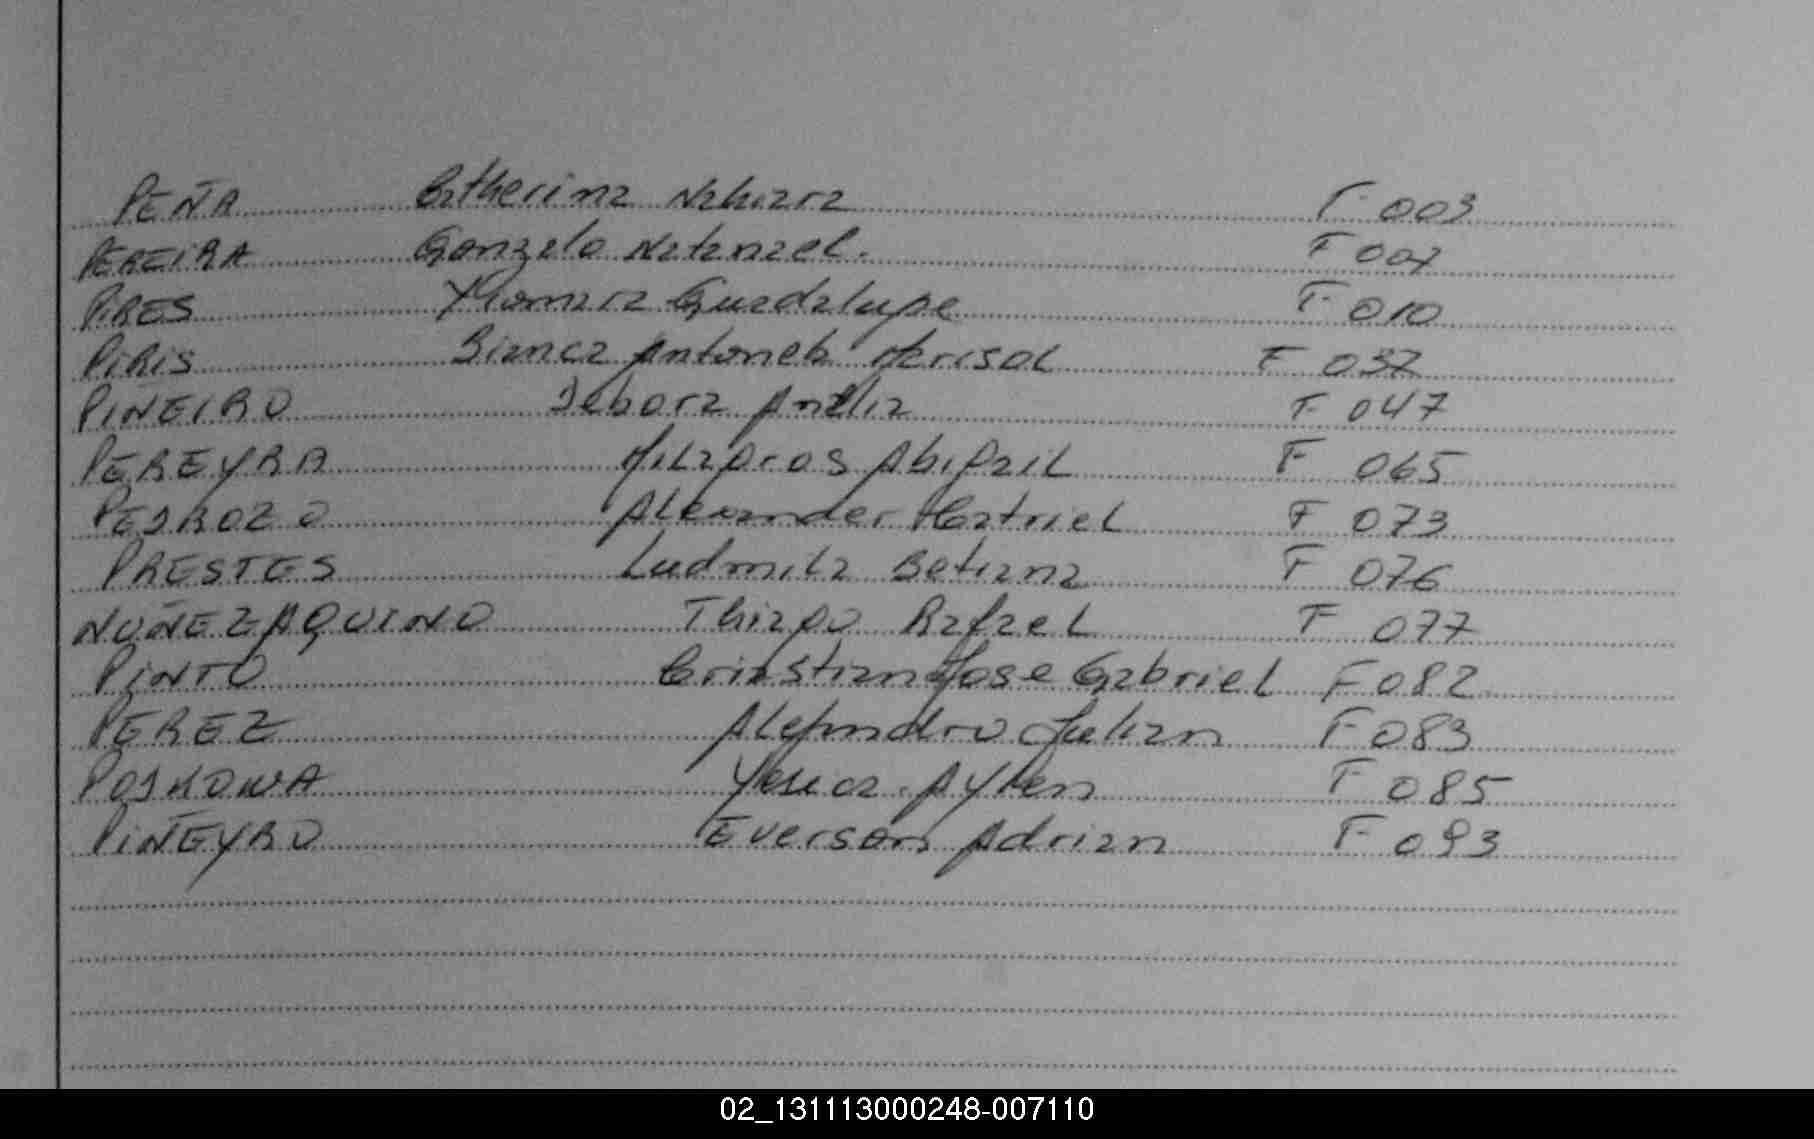 PEÑA Catherina Nahiara F 003
PEREIRA Gonzalo Natanael. F 007
PIRES Xiomara Guadalupe F 010
PIRIS Bianca Antonela Marisol F 037
PINEIRO Debora Analia F 047
PEREYRA Milagros Abigail F 065
PEDROZO Alexander F 073
PRESTES Ludmila Betiana F 076
NUÑEZ AQUINO Thiago Rafael F 077
PINTO Jose Gabriel F 082
PEREZ Julian F 083
Aylen F 085
PIÑEYRO Everson Adrian F 093
02_131113000248-007110